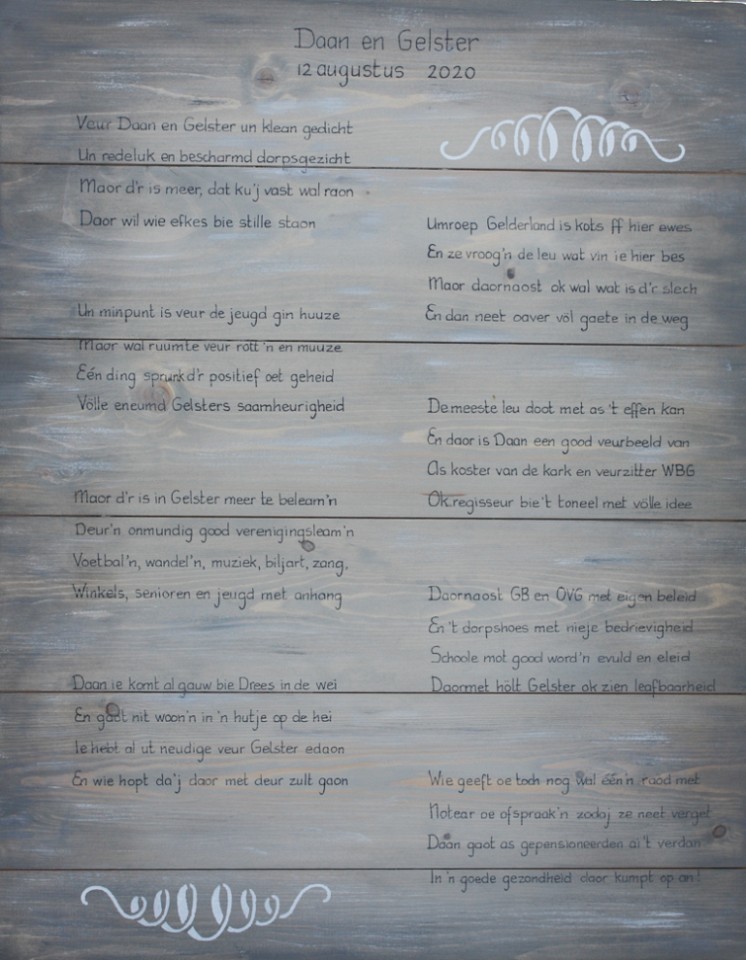 Daan en Gelster
12 augustus 2020
Veur Daan en Gelster un klean gedicht
Un redeluk en bescharmd dorpsgezicht
Maor d'r is meer, dat ku'j vast wal raon
Daor wil wie efkes bie stille staon
Un minpunt is veur de jeugd gin huuze
Maor wal ruumte veur rott'n en muuze
Eén ding sprunkd'r positief oet geheid
Völle eneumd Gelsters saamheurigheid
Maor d'r is in Gelster meer te beleam'n
Deur'n onmundig good verenigingsleam'n
Voetbal'n, wandel'n, muziek, biljart, zang,
Winkels, senioren en jeugd met anhang
Daan ie komt al gauw bie Drees in de wei
En gaot nit woon'n in 'n hutje op de hei
Ie hebt al ut neudige veur Gelster edaon
En wie hopt da'j daor met deur zult gaon
Umroep Gelderland is kots ff hier ewes
En ze vroog'n de leu wat vin ie hier bes
Maor daornaost ok wal wat is d'r slech
En dan neet oaver völ gaete in de weg
De meeste leu doot met as 't effen kan
En daor is Daan een good veurbeeld van
As koster van de kark en veurzitter WBG
Ok regisseur bie 't toneel met völle idee
Daornaost GB en OVG met eigen beleid
En 't dorpshoes met nieje bedrievigheid
Schoole mot good word'n evuld en eleid
Daormet hölt Gelster ok zien leafbaarheid
Wie geeft oe toch nog wal één'n raod met
Notear oe ofspraak'n zodaj ze neet verget
Daan gaot as gepensioneerden ai't verdan
In 'n goede gezondheid daor kumpt op an!